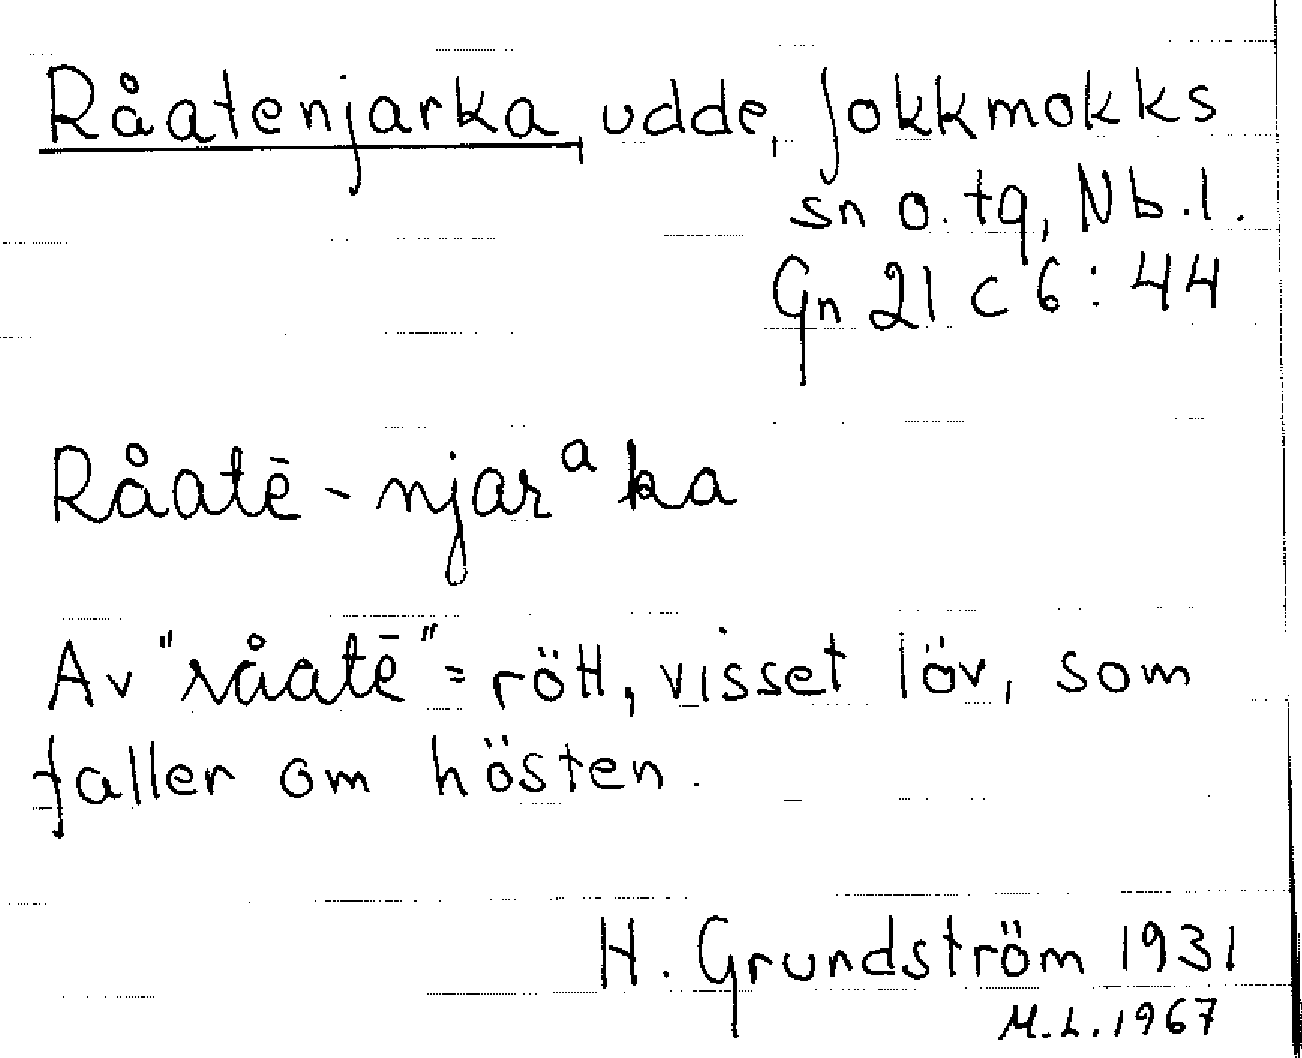 Råatenjarka, udde, Jokkmokks
sn o. tg, Nb.l.
Gn 21 c 6 : 44
Råatē - njarᵃka
Av "råatē" = rött, visset löv, som
faller om hösten.
H. Grundström 1931
M.L. 1967